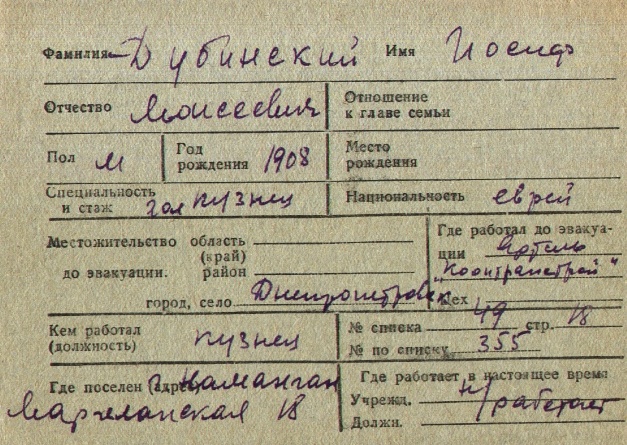 Фамилия Дубинский Имя Иосиф
Отчество Моисеевич
Отношение
к главе семьи
Пол м
Год
рождения 1908
Место
рождения
Специальность
и стаж кузнец
Национальность еврей
Местожительство область
(край)
до эвакуации. район
город, село Днепропетровск
Где работал до эвакуа-
ции Артель
"Коопранстрой"
Цех
Кем работал
(должность) кузнец
№ списка 49 стр. 18
№ по списку 355
Где поселен (адрес) г. Наманган
Маргеланская 18
Где работает в настоящее время
Учрежд. н/работает
Должн.